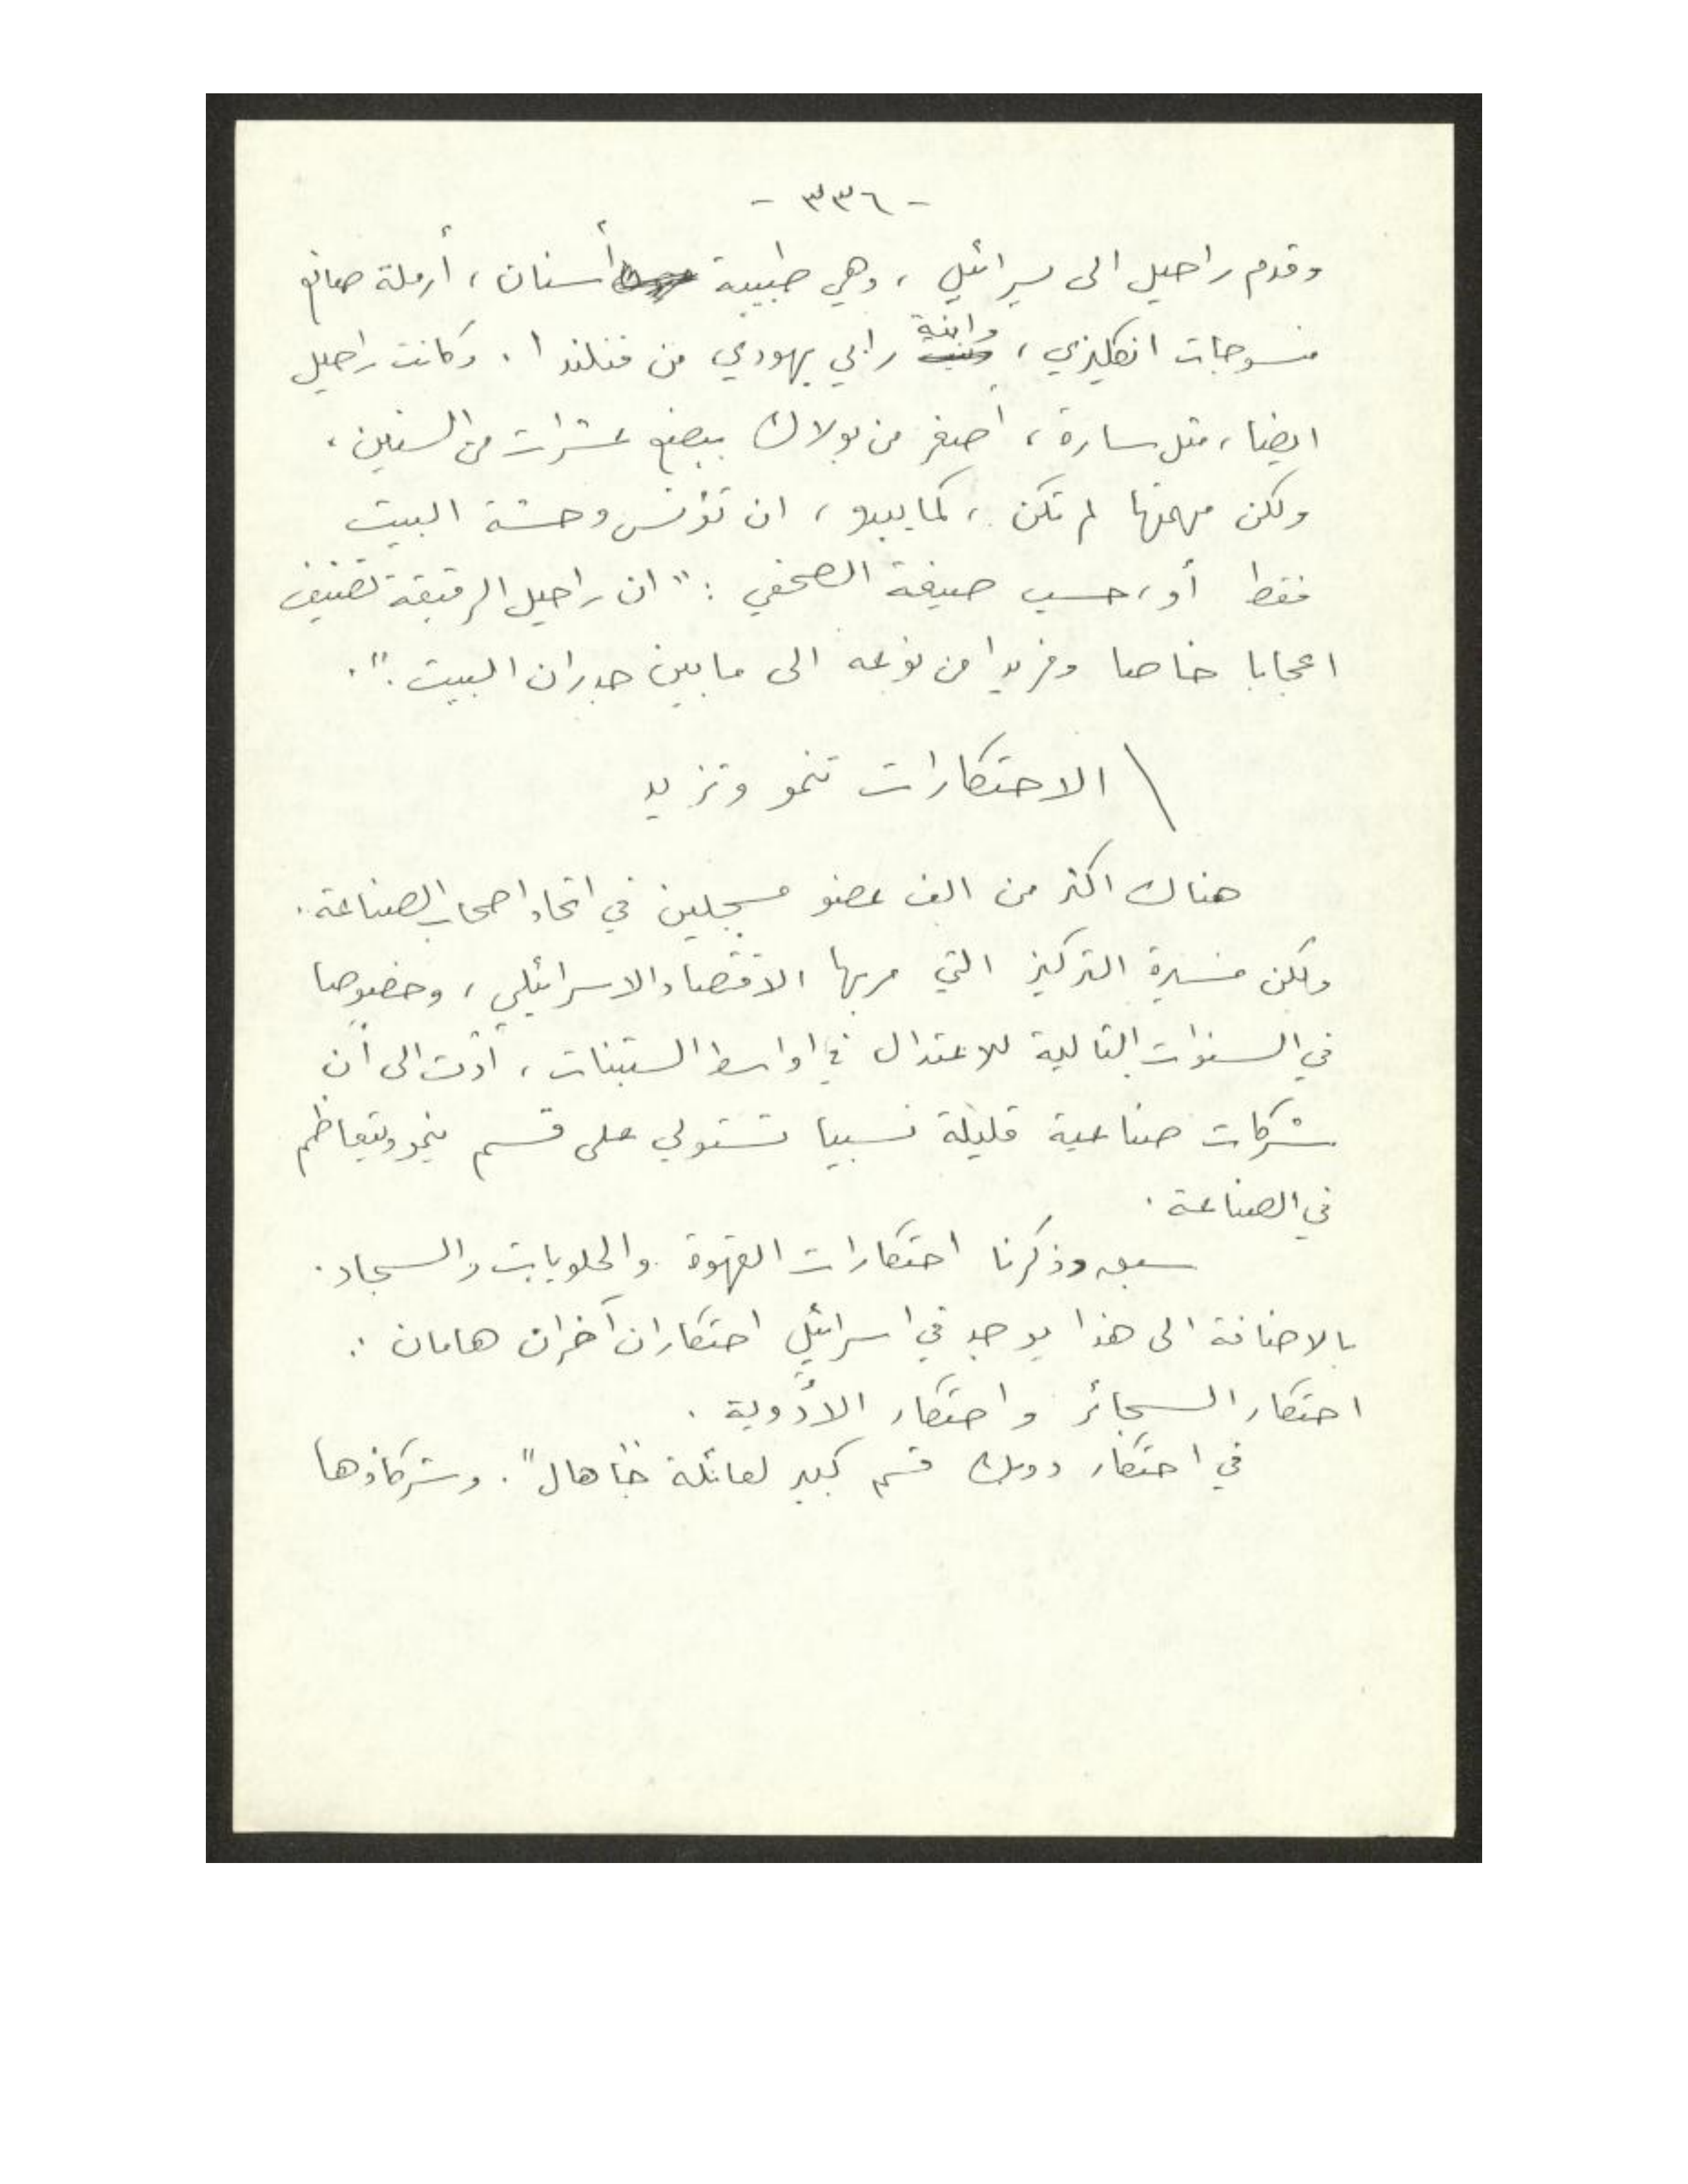 - ٣٣٦ -
وقدم راحيل الى يسرائيل ، وهي طبيبة أسنان ، أرملة صانع
منسوجات انكليزي ، وابنة رابي يهودي من فنلندا . وكانت راحيل
ايضا ، مثل سارة ، أصغر من بولاك ببضع عشرات من السنين ،
ولكن مهمتها لم تكن ، كما يبدو ، ان تؤنس وحشة البيت
فقط أو ، حسب صيغة الصحفي : " ان راحيل الرقيقة تضيف
اعجابا خاصا وفريدا من نوعه الى ما بين جدران البيت . " .
\ الاحتكارات تنمو وتزيد
هناك اكثر من الف عضو مسجلين في اتحاد اصحاب الصناعة .
ولكن مسيرة التركيز التي مر بها الاقتصاد الاسرائيلي ، وخصوصا
في السنوات التالية للاعتدال في اواسط الستينات ، أدّت الى أن
شركات صناعية قليلة نسبيا تستولي على قسم ينمو ويتعاظم
في الصناعة .
سبق وذكرنا احتكارات القهوة والحلويات والسجاد .
بالاضافة الى هذا يوجد في اسرائيل احتكاران آخران هامان :
احتكار السجائر واحتكار الأدوية .
في احتكار دوبك قسم كبير لعائلة هال " . وشركاؤها